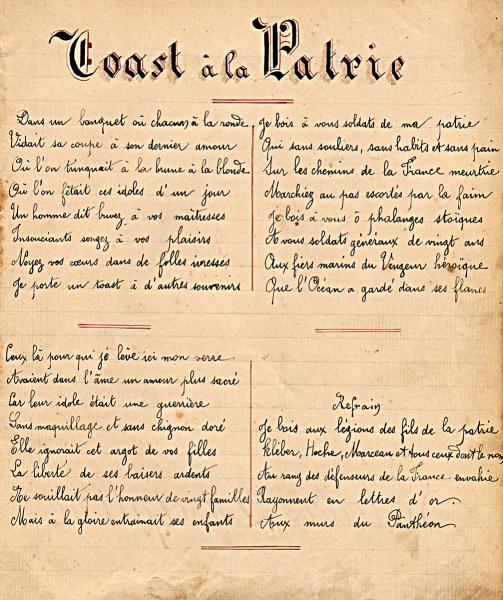 Toast à la Patrie
Dans un banquet où chacun à la ronde
Vidait sa coupe à son dernier amour
Où l'on trinquait à la brune à la blonde
Où l'on fêtait ces idoles d'un jour
Un homme dit buvez à vos maîtresses
Insouciants songez à vos plaisirs
Noyez vos cœurs dans de folles ivresses
Je porte un toast à d'autres souvenirs
Je bois à vous soldats de ma patrie
Qui sans souliers, sans habits et sans pain
Sur les chemins de la France meurtrie
Marchiez au pas escortés par la faim
Je bois à vous ô phalanges stoïques
A vous soldats généraux de vingt ans
Aux fiers marins du Vengeur héroïque
Que l'Océan a gardé dans ses flancs
Ceux là pour qui je lève ici mon verre
Avaient dans l'âme un amour plus sacré
Car leur idole était une guerrière
Sans maquillage et sans chignon doré
Elle ignorait cet argot de vos filles
La liberté de ses baisers ardents
Ne souillait pas l'honneur de vingt familles
Mais à la gloire entrainait ses enfants
Refrain
Je bois aux légions des fils de la patrie
Kléber, Hoche, Marceau et tous ceux dont le nom
Au rang des défenseurs de la France envahie
Rayonnent en lettres d'or
Aux murs du Panthéon